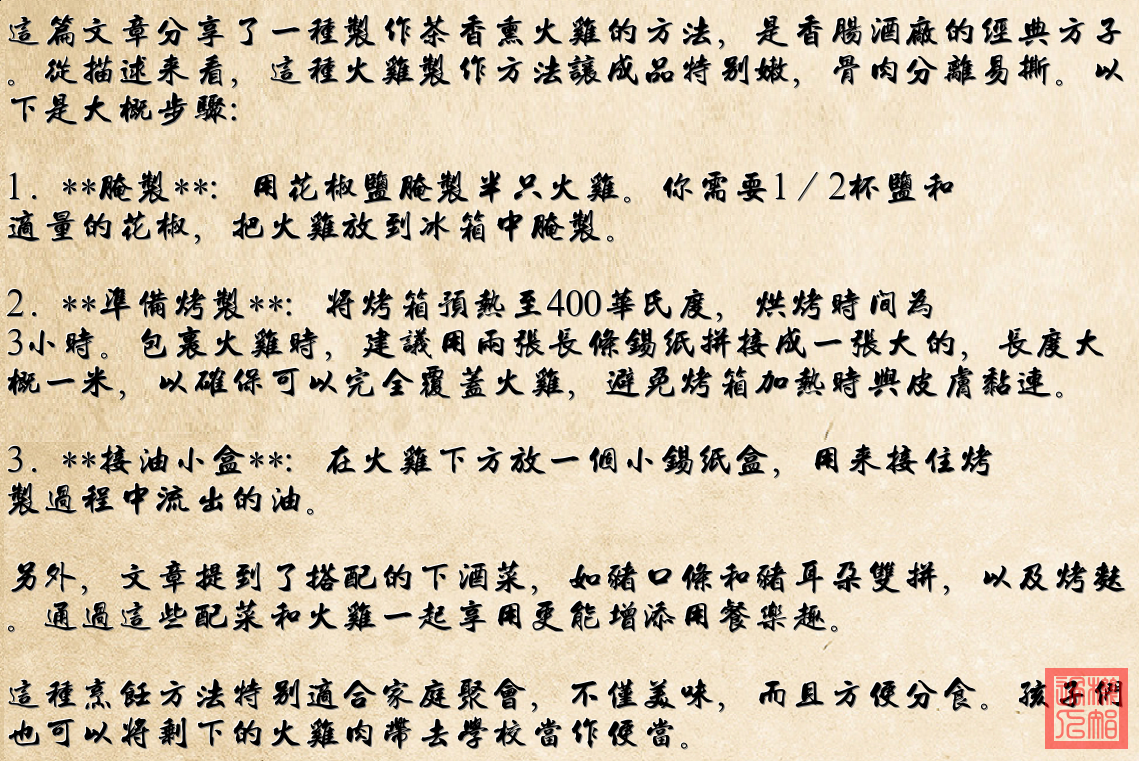 這篇文章分享了一種製作茶香熏火雞的方法，是香腸酒廠的經典方子
。從描述来看，這種火雞製作方法讓成品特别嫩，骨肉分離易撕。以
下是大概步驟：
1. **腌製**： 用花椒鹽腌製半只火雞。你需要1／2杯鹽和
適量的花椒，把火雞放到冰箱中腌製。
2. **準備烤製**： 將烤箱預熱至400華氏度，烘烤時间為
3小時。包裹火雞時，建議用兩張長條錫纸拼接成一張大的，長度大
概一米，以確保可以完全覆蓋火雞，避免烤箱加熱時與皮膚黏連。
3. **接油小盒**： 在火雞下方放一個小錫纸盒，用来接住烤
製過程中流出的油。
另外，文章提到了搭配的下酒菜，如豬口條和豬耳朵雙拼，以及烤麩
。通過這些配菜和火雞一起享用更能增添用餐樂趣。
這種烹飪方法特别適合家庭聚會，不僅美味，而且方便分食。孩子們
也可以將剩下的火雞肉帶去學校當作便當。